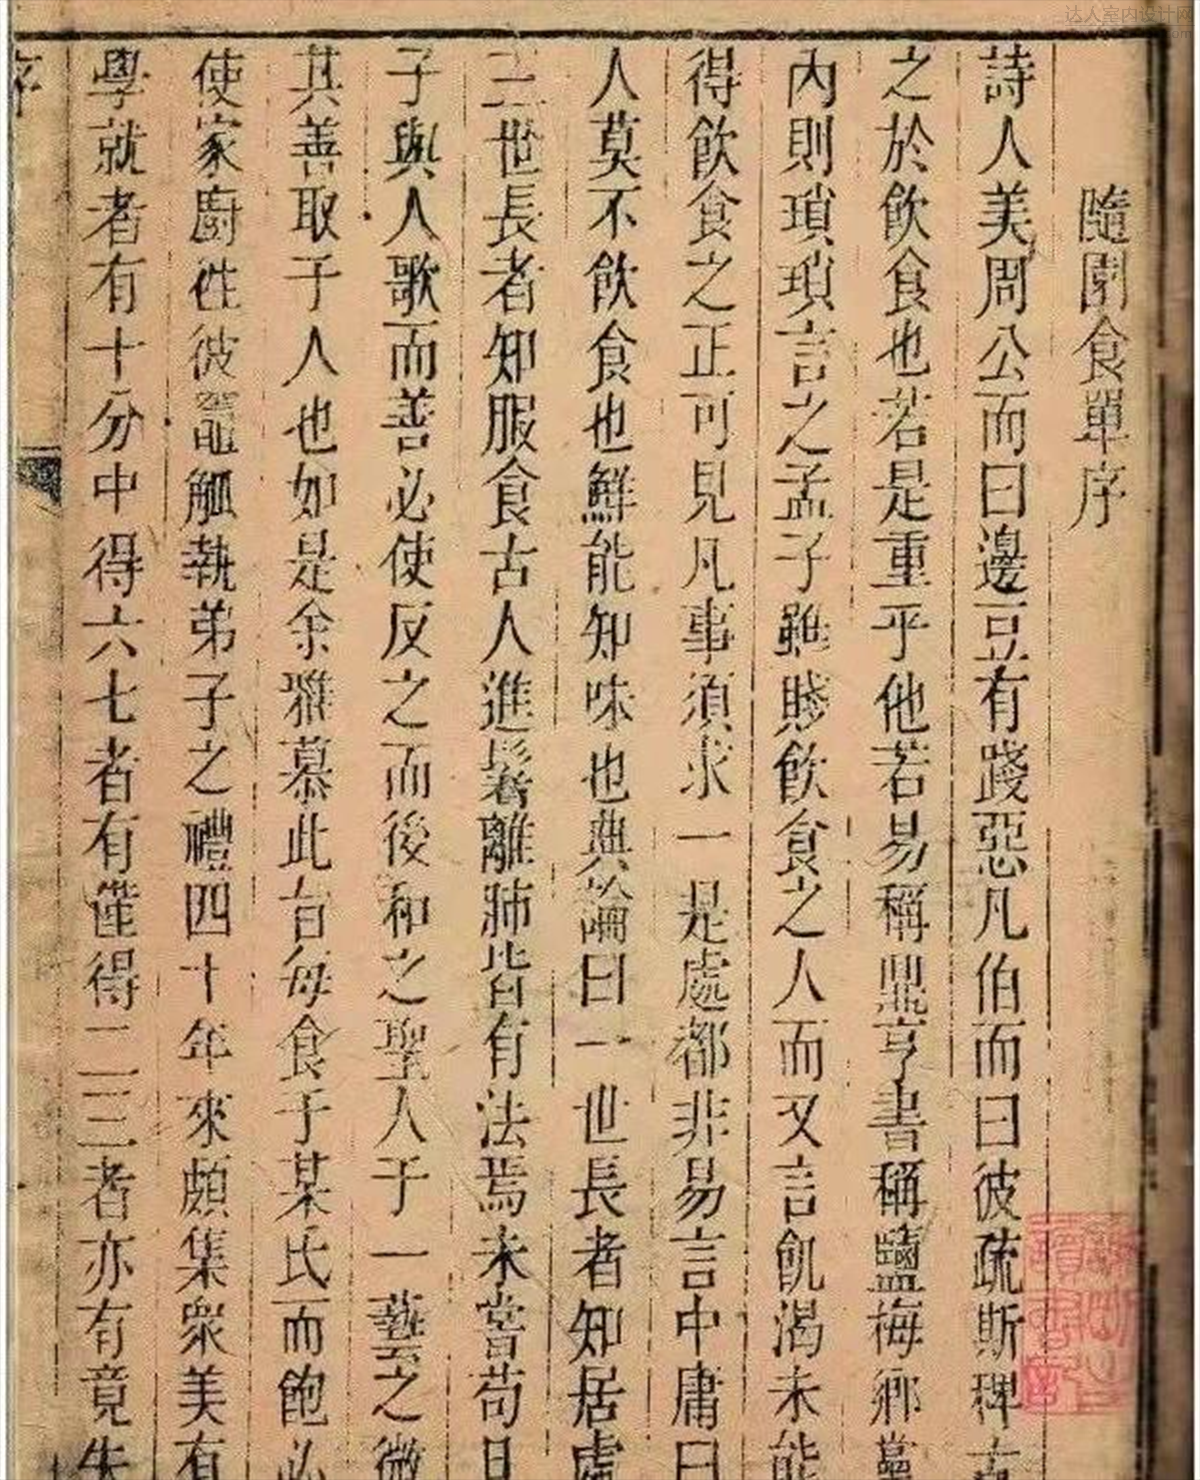 隨園食單序
詩人美周公而曰邊豆有踐惡凡伯而曰彼疏斯稗
之於飲食也若是重乎他若易稱鼎亨書稱鹽梅鄉黨
內則瑣瑣言之孟子雖賤飲食之人而又言飢渴未能
得飲食之正可見凡事須求一是處都非易言中庸曰
人莫不飲食也鮮能知味也典論曰一世長者知居處
三世長者知服食古人進鬐離肺皆有法焉未嘗苟且
子與人歌而善必使反之而後和之聖人于一藝之微
其善取于人也如是余雅慕此旨每食于某氏而飽必
使家廚往彼竈觚執弟子之禮四十年來頗集衆美有
學就者有十分中得六七者有僅得二三者亦有竟失
序
达人室内设计网